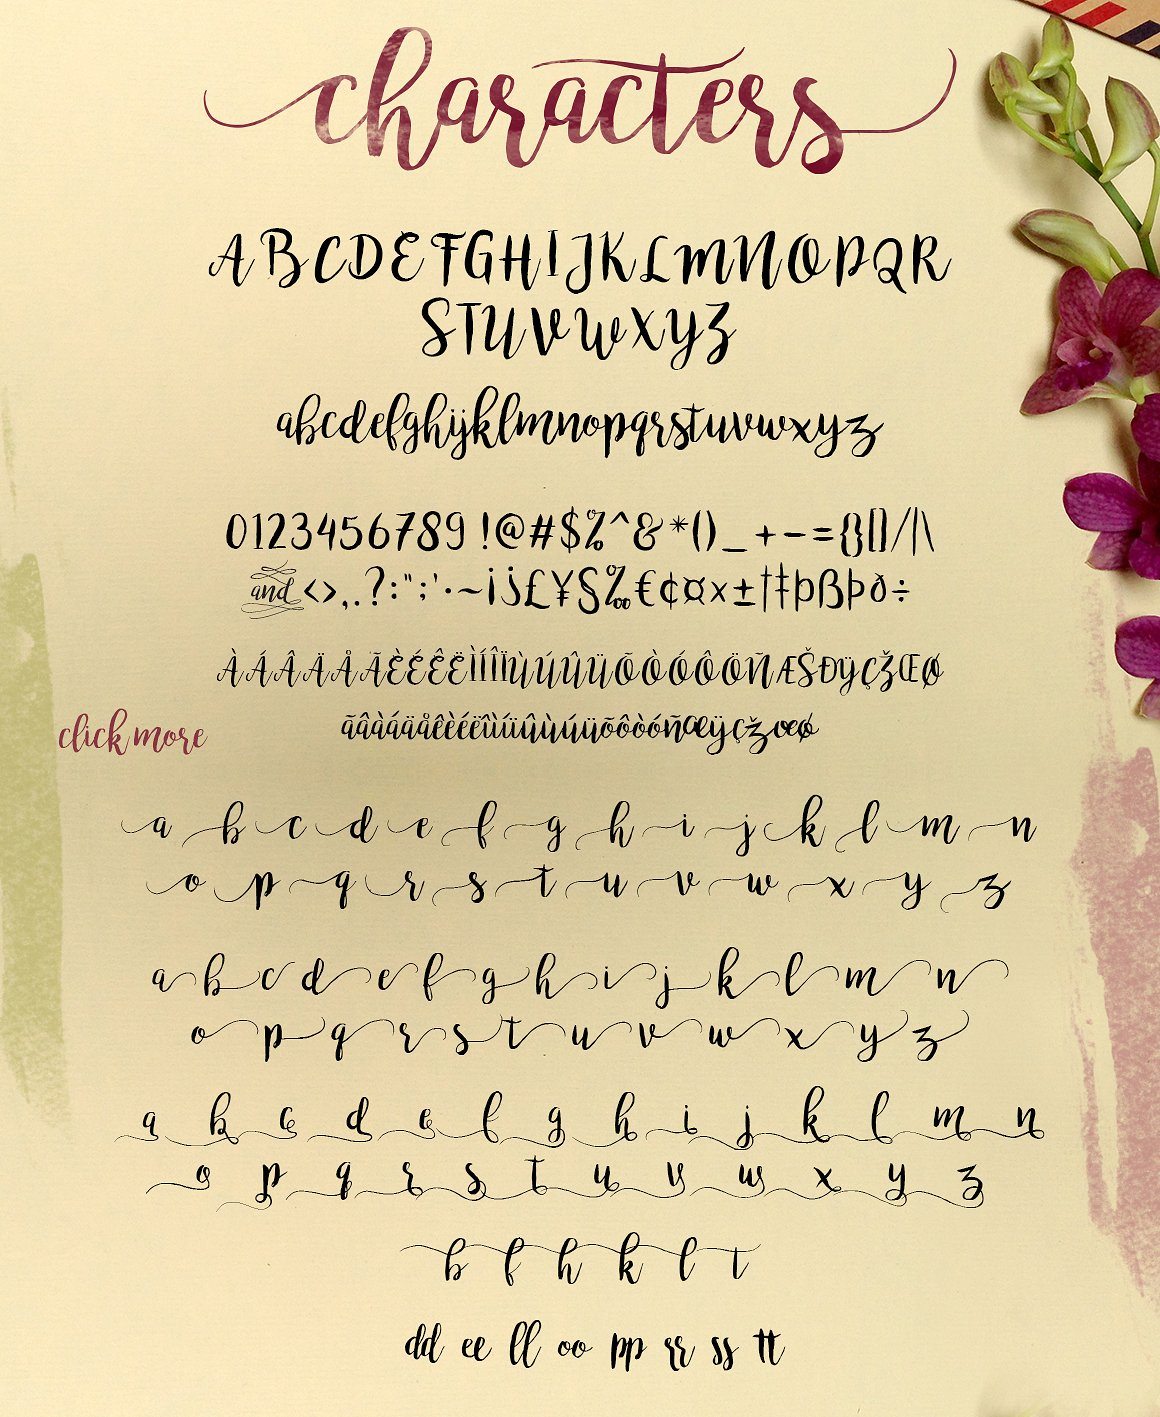 characters
ABCDEFGHIJKLMNOPQR
STUVWXYZ
abcdefghijklmnopqrstuvwxyz
0123456789 !@#$%^&*()_+-={}[]/|\
and<>,.?:";'·~¡j£¥§‰€¢¤×±†‡þßÞð÷
ÀÁÂÄÅÃÈÉÊËÌÍÎÏÙÚÛÜÕÒÓÔÖÑÆŠÐŸÇŽŒØ
click more
ãâàáäåêèéëîìíïûùúüõôòóñæÿçžœø
a b c d e f g h i j k l m n
o p q r s t u v w x y z
a b c d e f g h i j k l m n
o p q r s t u v w x y z
a b c d e f g h i j k l m n
o p q r s t u v w x y z
b f h k l t
dd ee ll oo pp rr ss tt